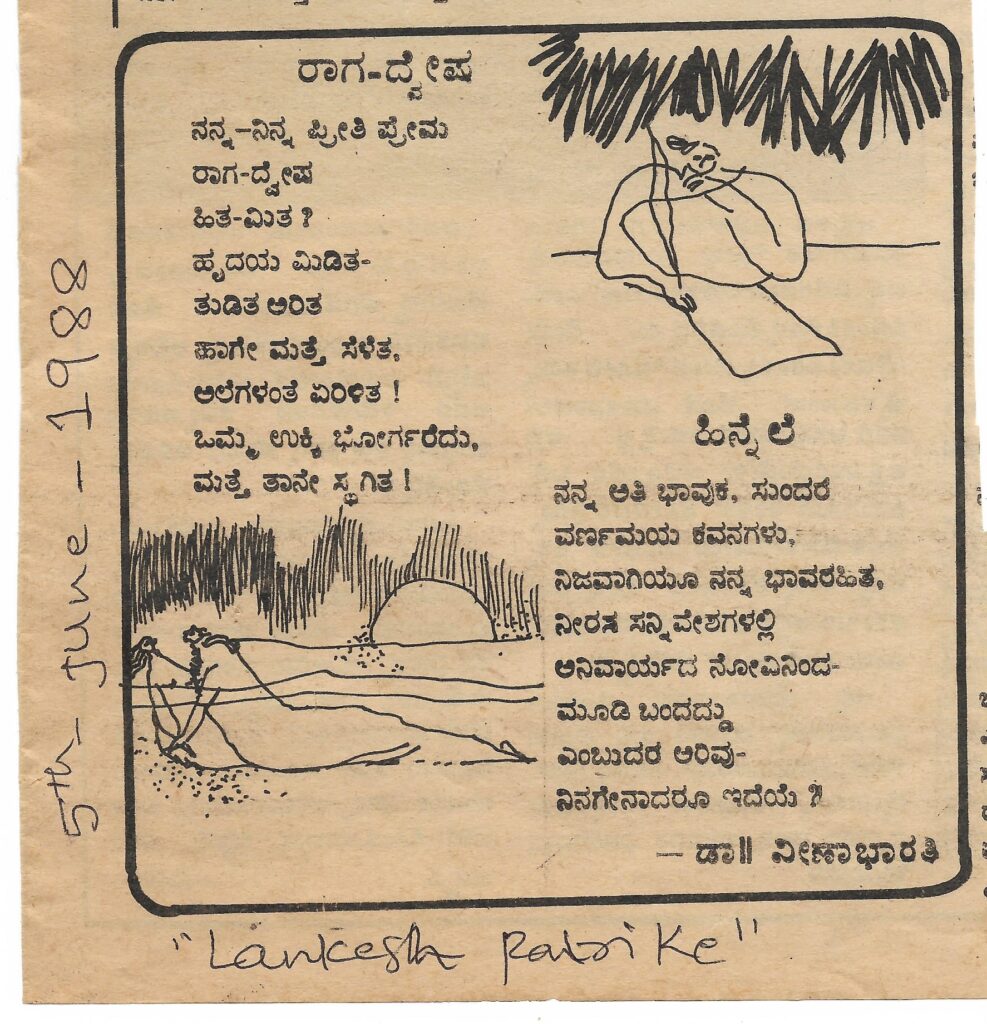 ರಾಗ-ದ್ವೇಷ
ನನ್ನ-ನಿನ್ನ ಪ್ರೀತಿ ಪ್ರೇಮ
ರಾಗ-ದ್ವೇಷ
ಹಿತ-ಮಿತ ?
ಹೃದಯ ಮಿಡಿತ-
ತುಡಿತ ಅರಿತ
ಹಾಗೇ ಮತ್ತೆ ಸೆಳೆತ,
ಅಲೆಗಳಂತೆ ಏರಿಳಿತ !
ಒಮ್ಮೆ ಉಕ್ಕಿ ಭೋರ್ಗರೆದು,
ಮತ್ತೆ ತಾನೇ ಸ್ಥಗಿತ !
ಹಿನ್ನೆಲೆ
ನನ್ನ ಅತಿ ಭಾವುಕ, ಸುಂದರ
ವರ್ಣಮಯ ಕವನಗಳು,
ನಿಜವಾಗಿಯೂ ನನ್ನ ಭಾವರಹಿತ,
ನೀರಸ ಸನ್ನಿವೇಶಗಳಲ್ಲಿ
ಅನಿವಾರ್ಯದ ನೋವಿನಿಂದ-
ಮೂಡಿ ಬಂದದ್ದು
ಎಂಬುದರ ಅರಿವು-
ನಿನಗೇನಾದರೂ ಇದೆಯೆ ?
— ಡಾ|| ವೀಣಾಭಾರತಿ
5th - June - 1988
"Lankesh Patrike"